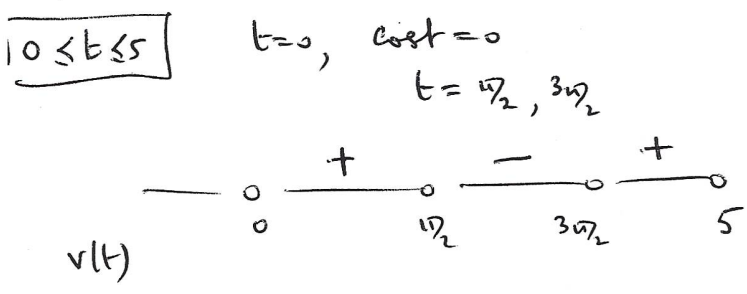 0 ≤ t ≤ 5
t=0, cost=0
t = π/2, 3π/2
+ − +
0 π/2 3π/2 5
v(t)